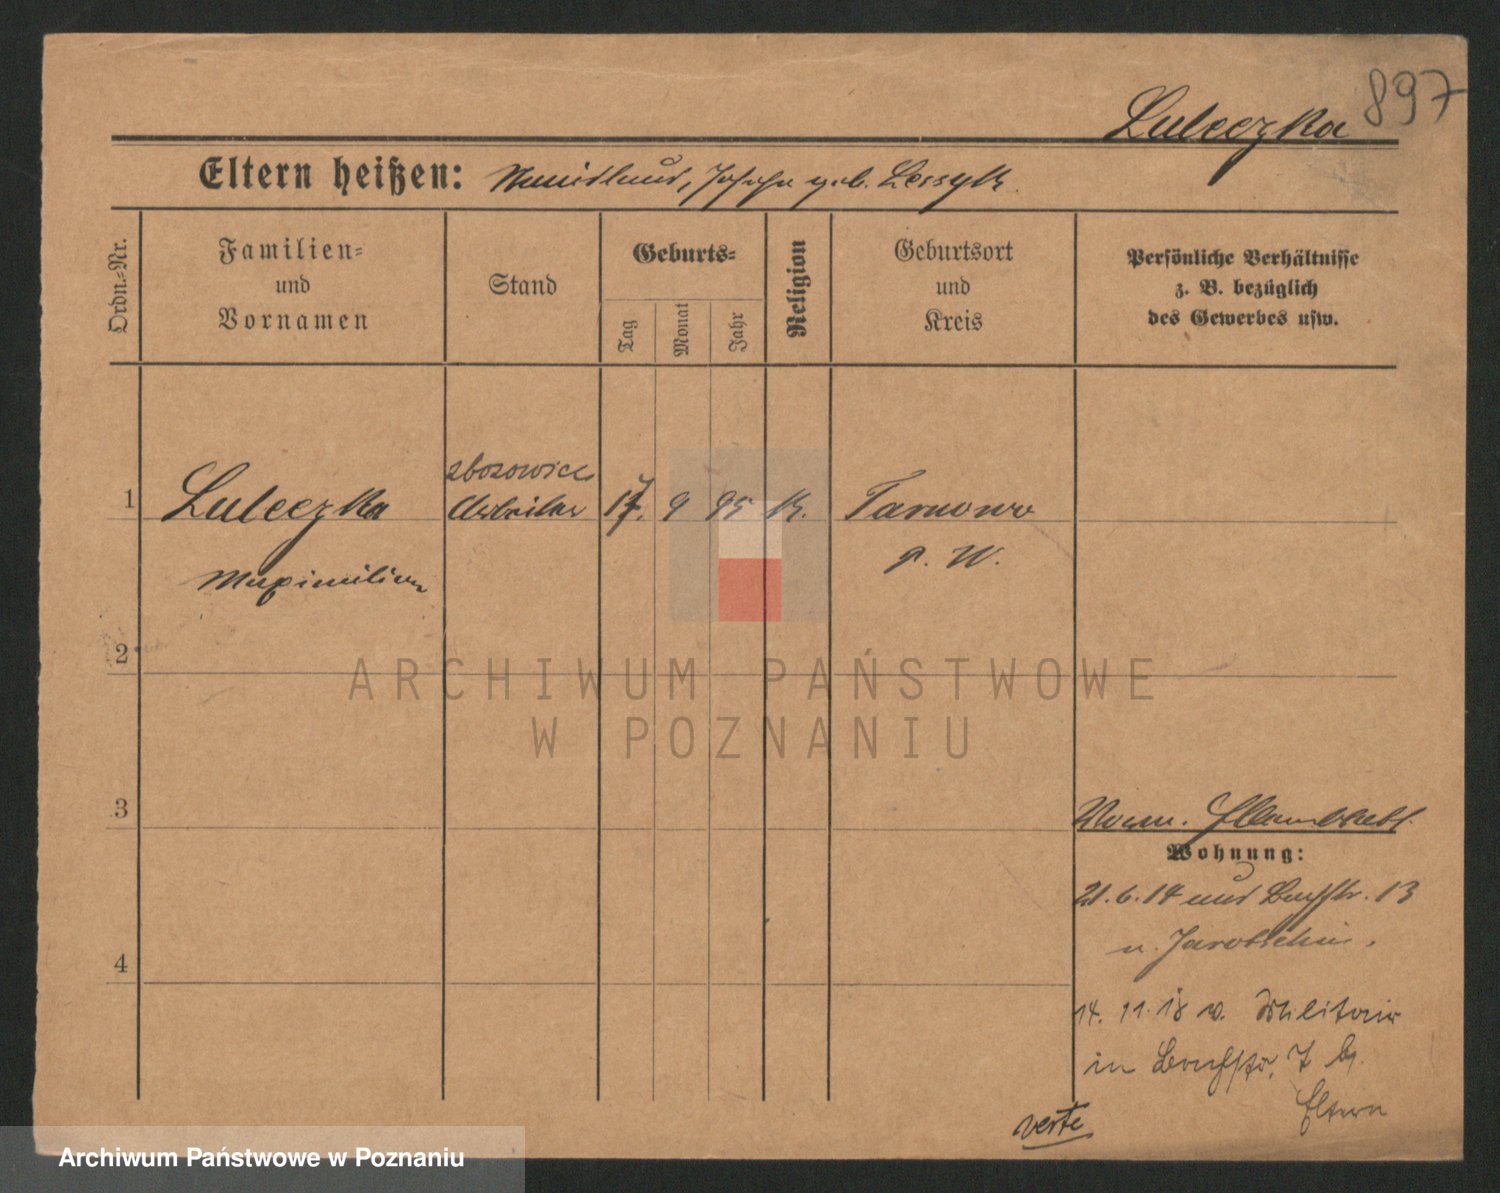 897
Lubeczka
Eltern heißen: geb.
Ordn.-Nr.
Familien-
und
Vornamen
Stand
Geburts-
Tag
Monat
Jahr
Religion
Geburtsort
und
Kreis
Persönliche Verhältnisse
z. B. bezüglich
des Gewerbes usw.
1 Lubeczka Arbeiter 17. 9 95 k. Tarnowo
Maximilian P. W.
2
3
4
Wohnung:
21.6.14 Bachstr. 13
n. Jarotschin.
14. 11. 18 v. Militair
in Bachstr. 7 b.
Eltern
verte
ARCHIWUM PAŃSTWOWE
W POZNANIU
Archiwum Państwowe w Poznaniu